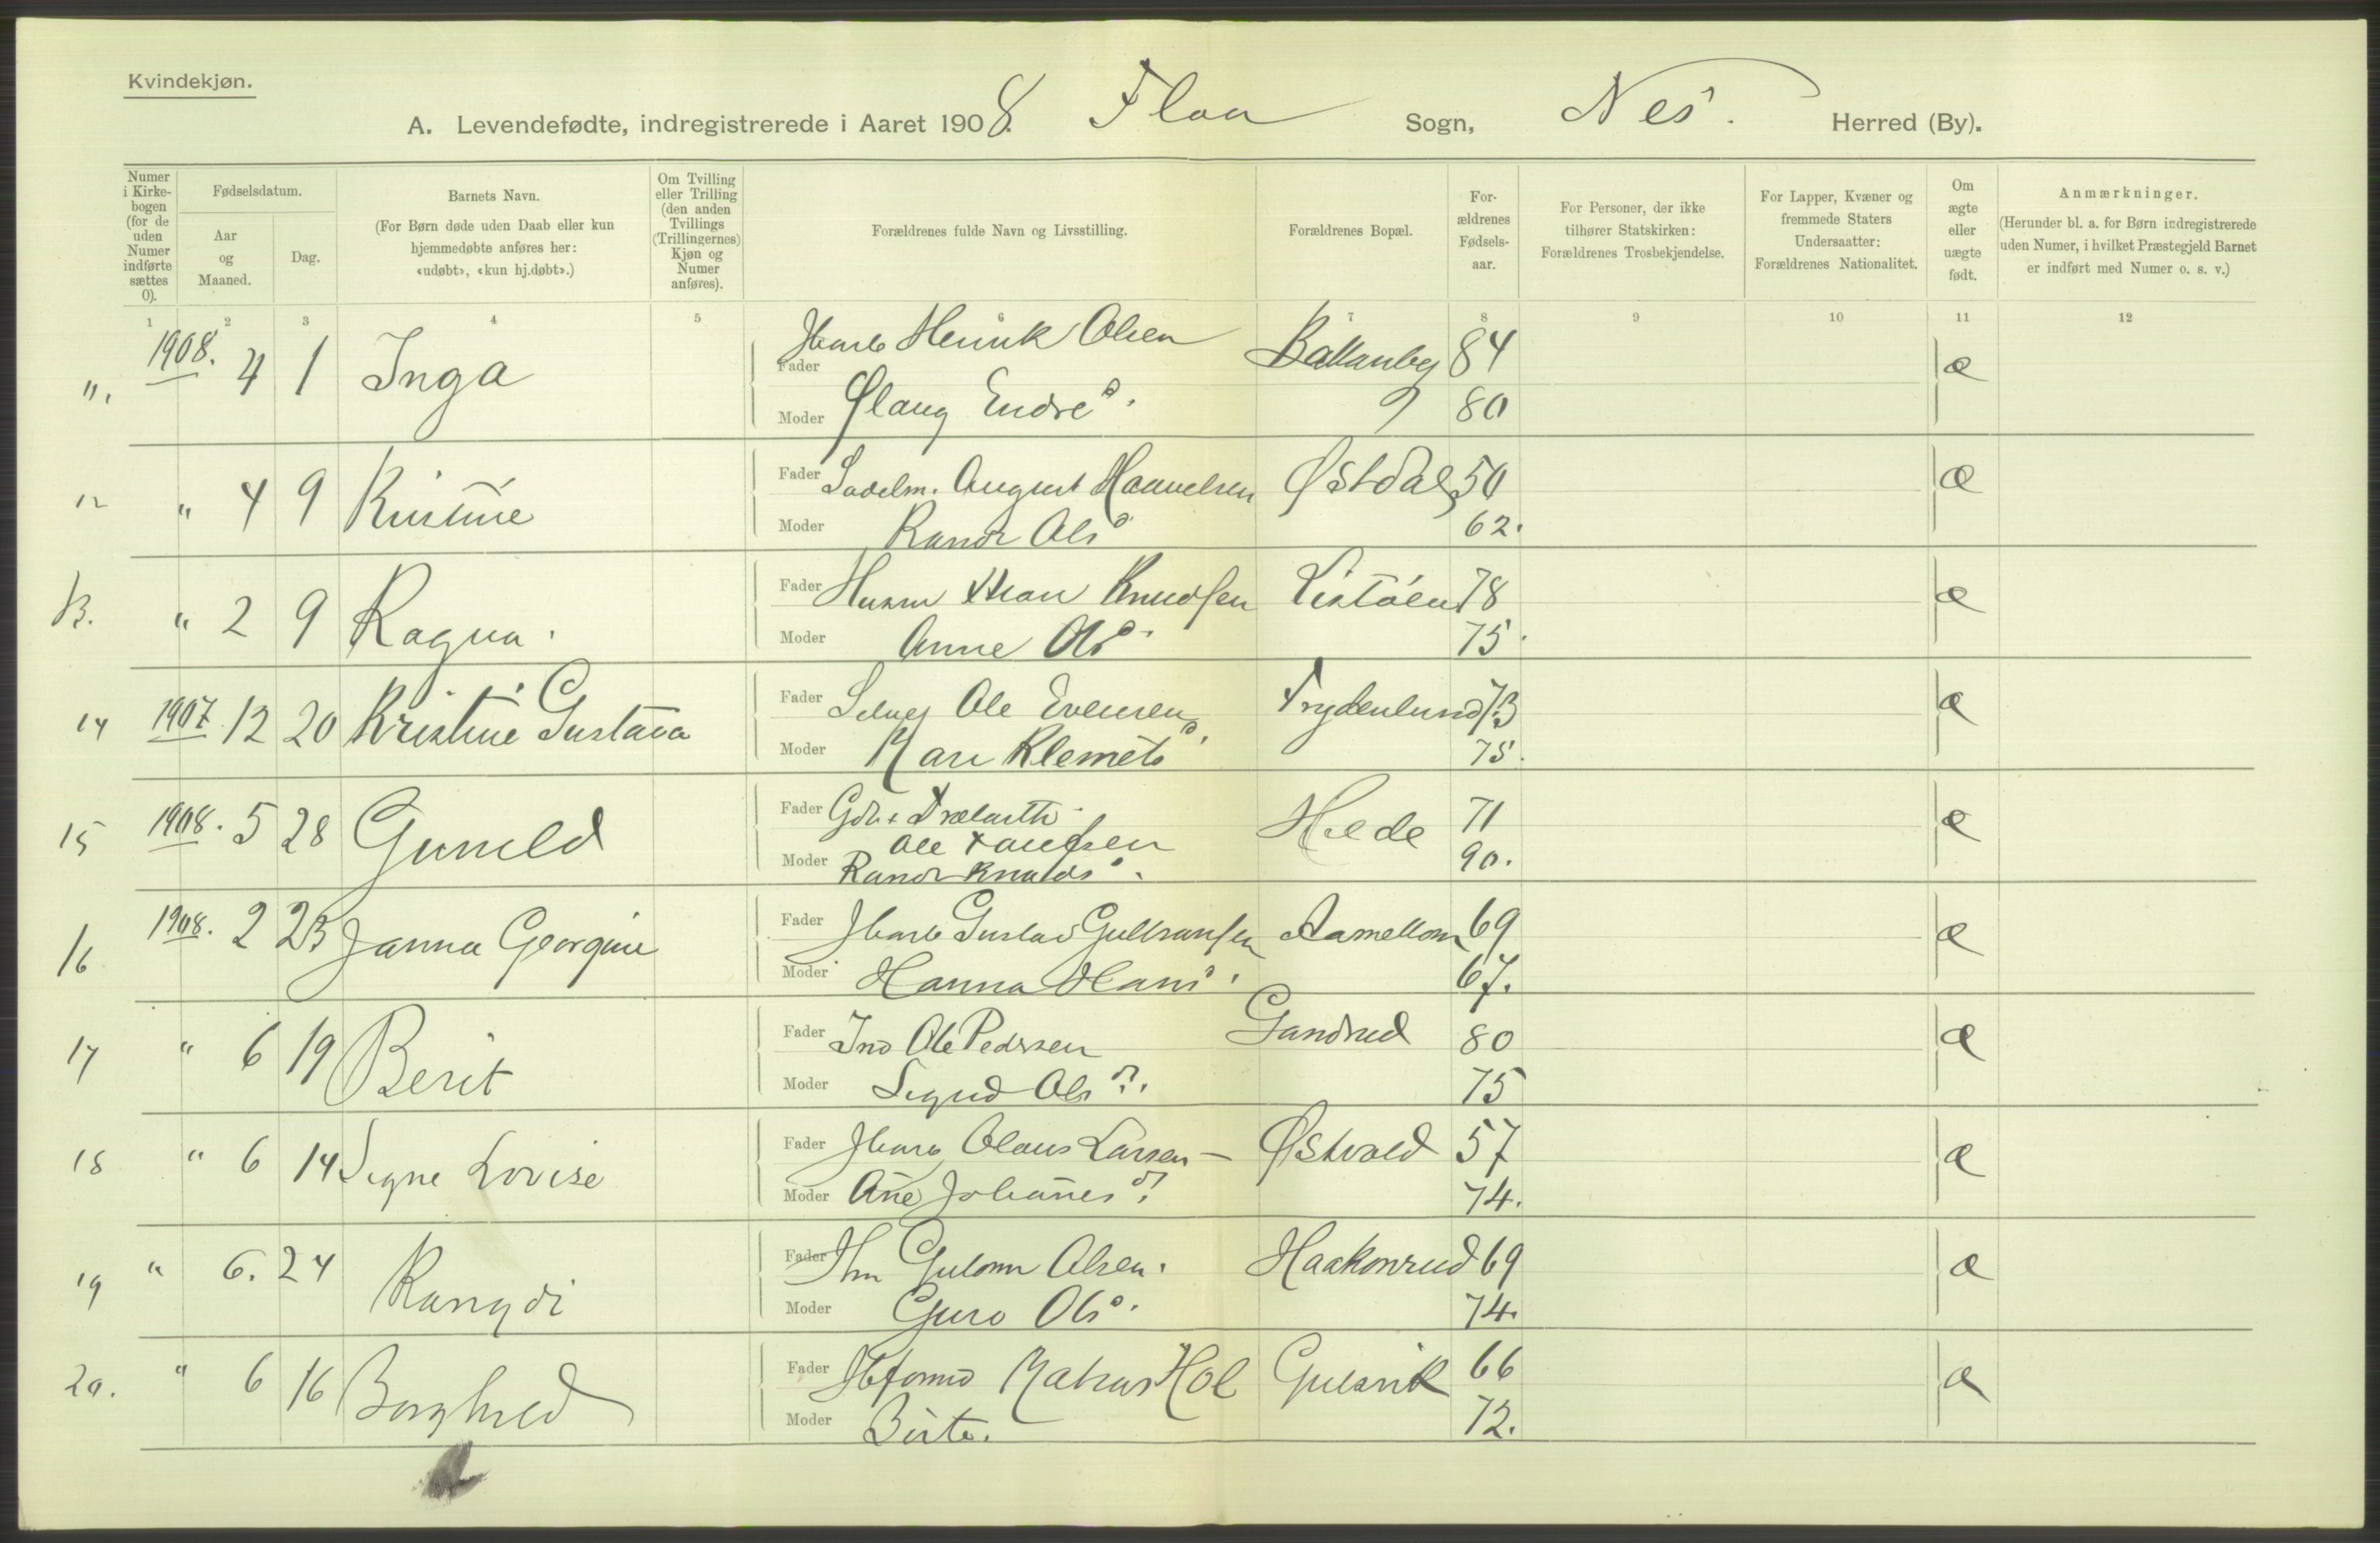 Kvindekjøn.
A. Levendefødte, indregistrerede i Aaret 1908. Flaa Sogn, Nes. Herred (By).
Numer i Kirkebogen (for de uden Numer indførte sættes 0).
Fødselsdatum.
Aar og Maaned.
Dag.
Barnets Navn.
(For Børn døde uden Daab eller kun hjemmedøbte anføres her: «udøbt», «kun hj.døbt».)
Om Tvilling eller Trilling (den anden Tvillings (Trillingernes) Kjøn og Numer anføres).
Forældrenes fulde Navn og Livsstilling.
Forældrenes Bopæl.
Forældrenes Fødselsaar.
For Personer, der ikke tilhører Statskirken: Forældrenes Trosbekjendelse.
For Lapper, Kvæner og fremmede Staters Undersaatter: Forældrenes Nationalitet.
Om ægte eller uægte født.
Anmærkninger.
(Herunder bl. a. for Børn indregistrerede uden Numer, i hvilket Præstegjeld Barnet er indført med Numer o. s. v.)
1 2 3 4 5 6 7 8 9 10 11 12
11. 1908. 4 1 Inga Fader Henrik Olsen 84 æ
Moder Endre 80
12 " 4 9 Kristine Fader Sadelm. August Østdal 50 æ
Moder Randi Ols 62.
13. " 2 9 Ragna. Fader Husm Knudsen 78 æ
Moder Anne Ols 75.
14 1907 12 20 Kristine Gustava Fader Ole Evensen Frydenlund 73 æ
Moder Kari Klemets 75.
15 1908. 5 28 Gunild Fader Gbr. & Trælasth. Hilde 71 æ
Ole
Moder Randi Knuds. 90.
16 1908. 2 23 Janna Georgine Fader Gustav Gulbransen Aamellom 69 æ
Moder Hanna Hans. 67.
17 " 6 19 Berit Fader Ind Ole Pedersen Gandrud 80 æ
Moder Sigrid Ols 75
18 " 6 14 Signe Lovise Fader Olaus Larsen Østvold 57 æ
Moder Ane Johanes 74.
19 " 6. 24 Rangdi Fader Hm Olsen. Haakonrud 69 æ
Moder Guro Ols. 74.
20. " 6 16 Borghild Fader Hol Gulsvik 66 æ
Moder Birte. 72.